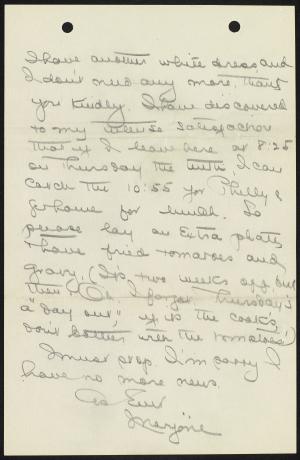 I have another white dress, and
I don't need any more, thank
you kindly. I have discovered
to my intense satisfaction
that if I leave here at 8:25
on Thursday the ninth, I can
catch the 10:55 for Philly &
get home for lunch. So
please lay an extra plate,
& have fried tomatoes and
gravy. (It's two weeks off, but
then, "Oh, I forgot Thursday's
a "day out," if it's the cook's,
don't bother with the tomatoes!)
I must stop. I'm sorry I
have no more news.
As Ever
Marjorie